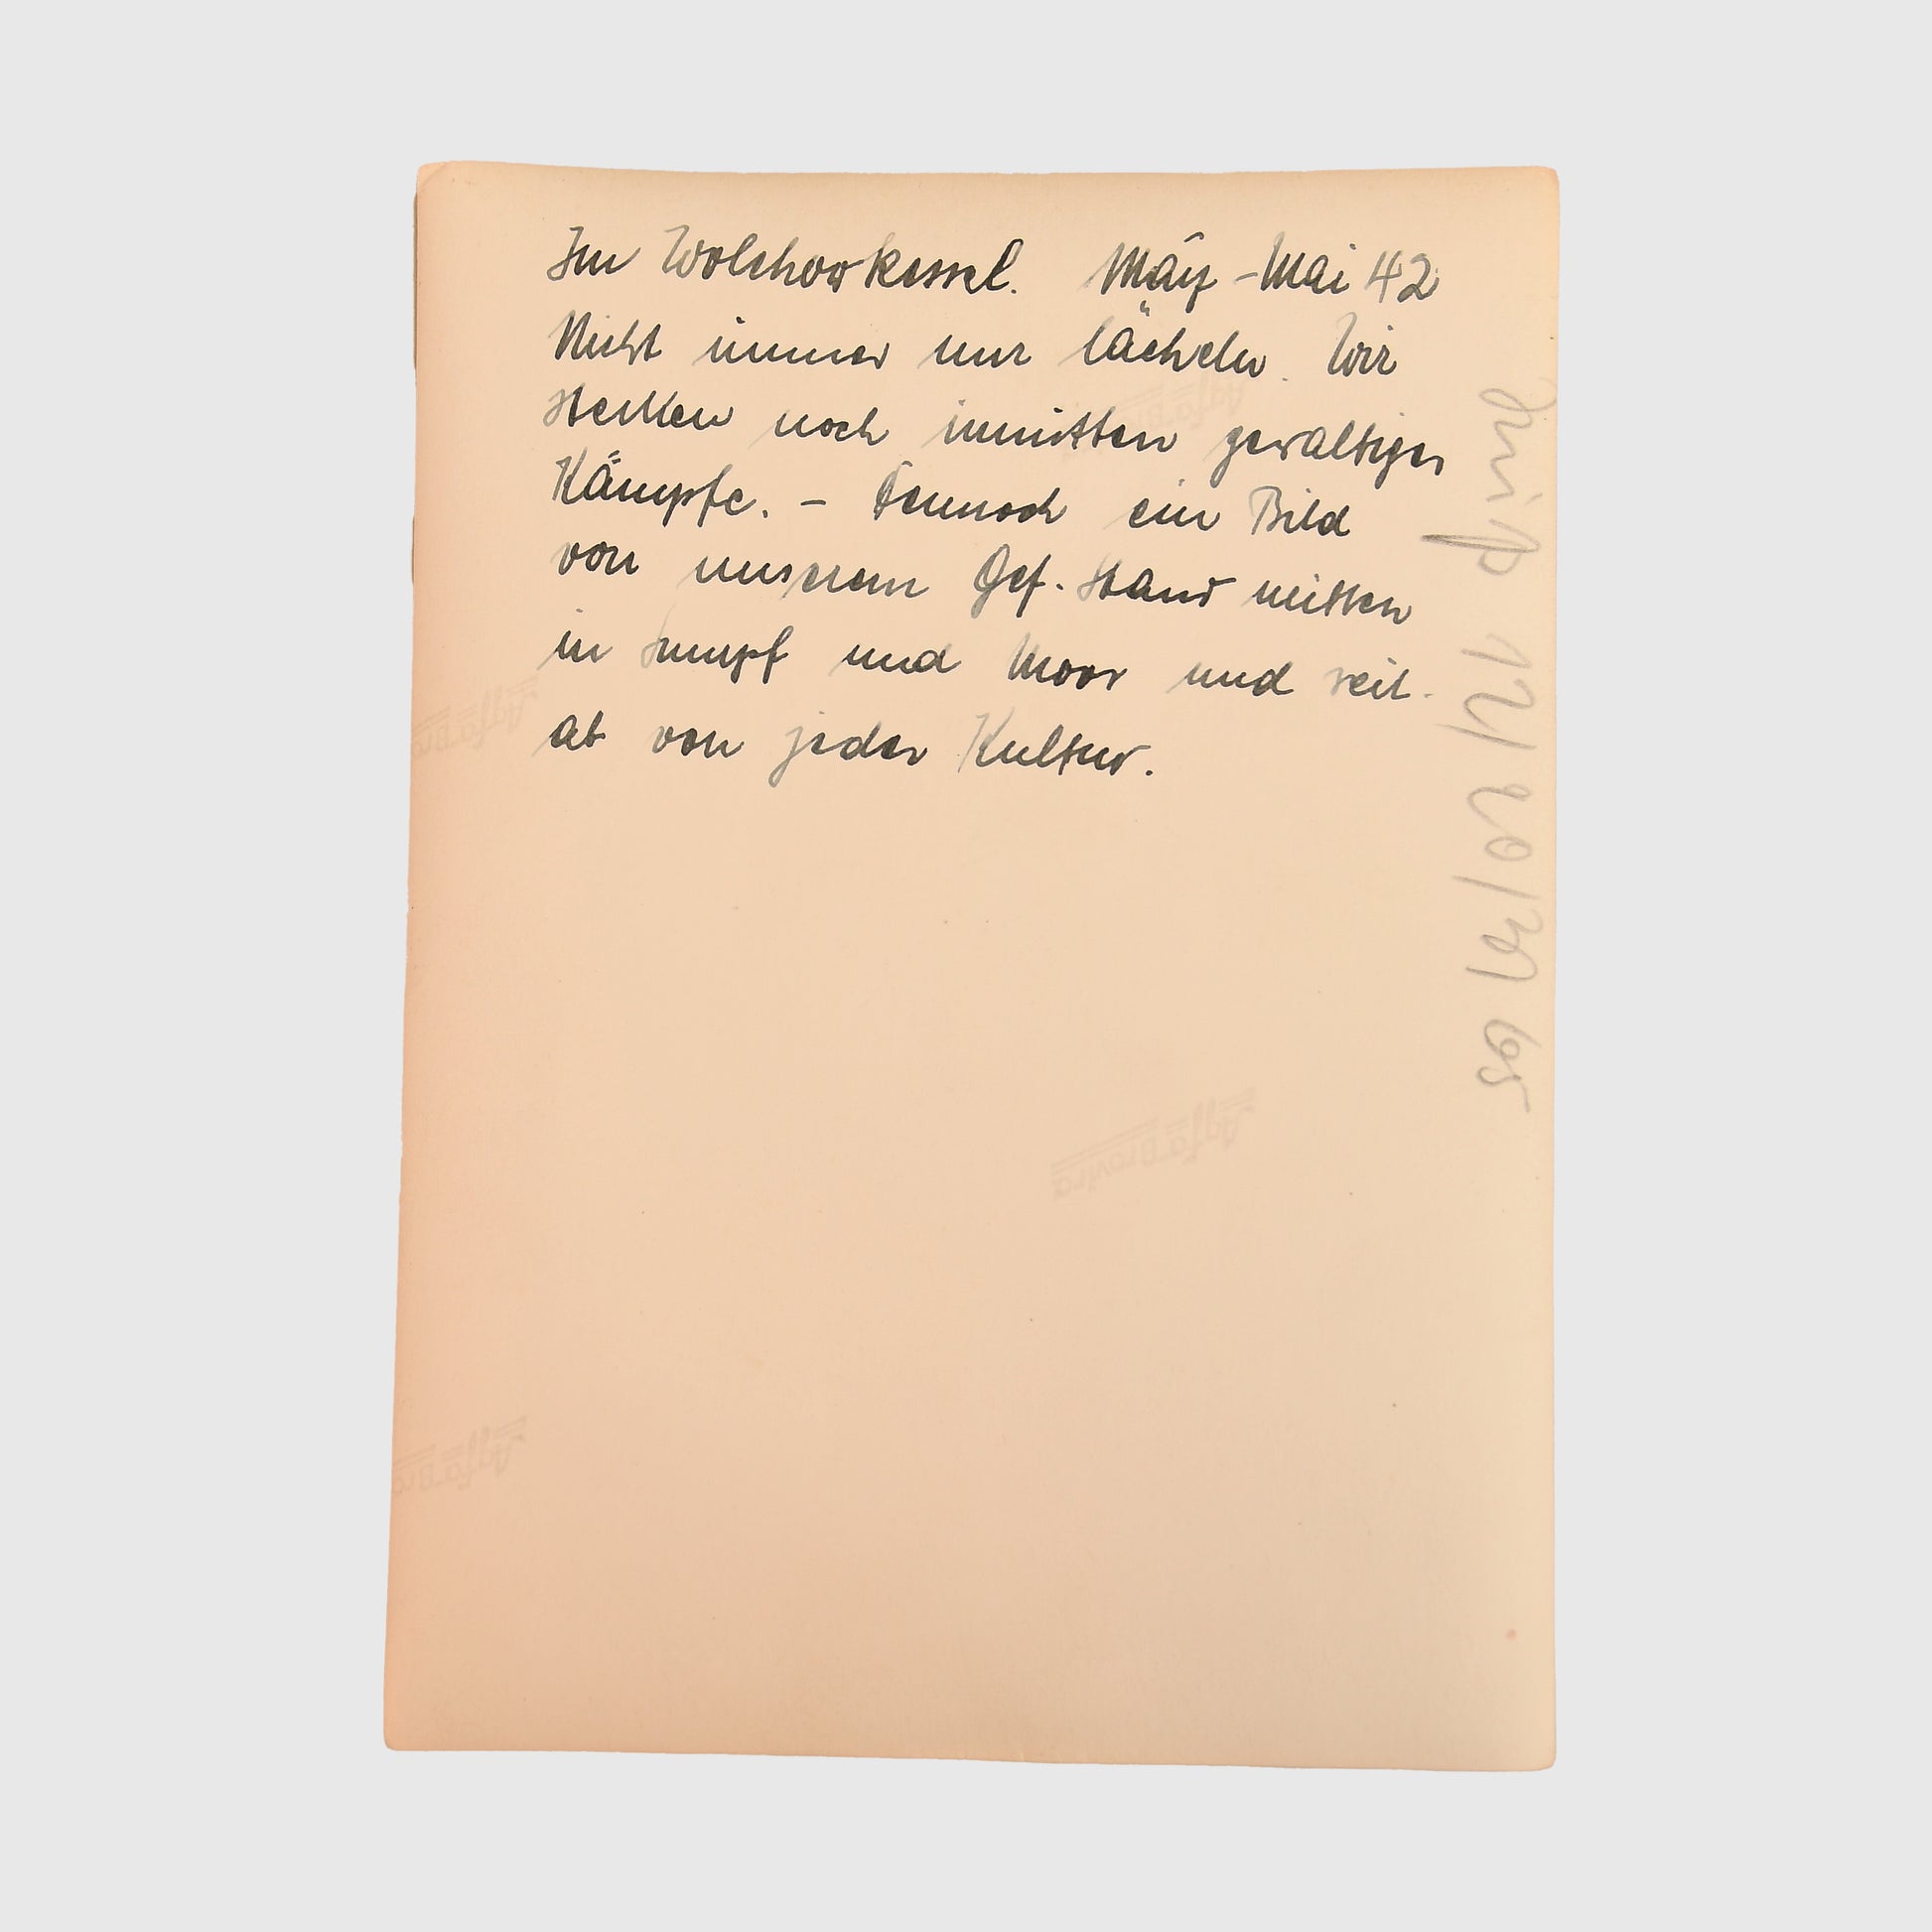 Im Wolchowkessel. März - Mai 42
Nicht immer nur lächeln. Wir
stecken noch inmitten gewaltiger
Kämpfe. - Dennoch ein Bild
von unserem Gef. Stand mitten
in Sumpf und Moor und seit-
ab von jeder Kultur.
Agfa-Brovira